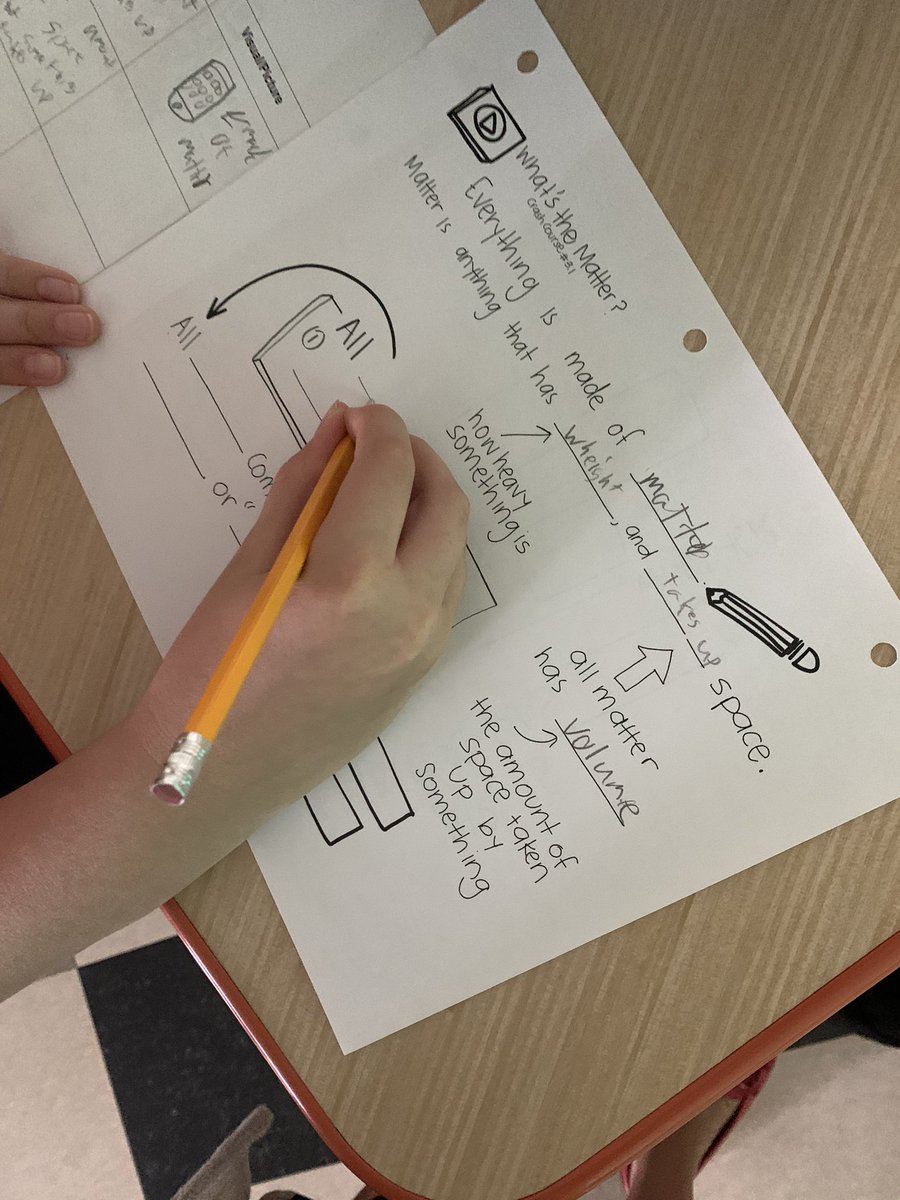 What's the Matter?
Crash Course #3.1
Everything is made of matter.
Matter is anything that has wheight, and takes up space.
how heavy
something is
all matter
has volume
the amount of
space taken
up by
something
① All
All
com
or "
Visual/Picture
of
matter
space